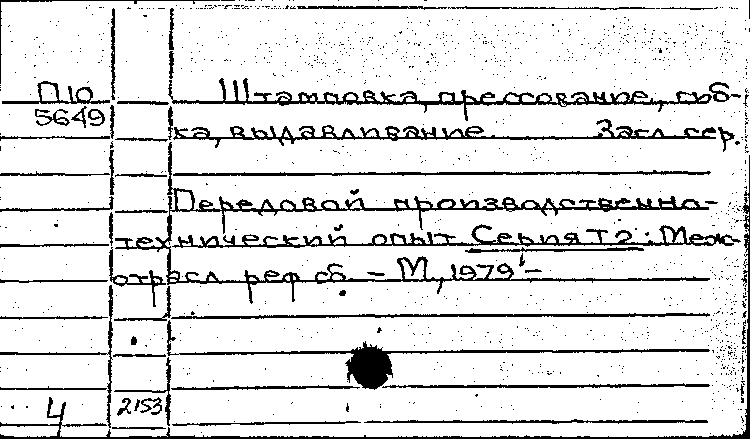 П10
5649
Штамповка, прессование, гиб-
ка, выдавливание. Загл. сер.
Передовой производственно-
технический опыт. Серия Т2: Меж-
отрасл. реф. сб. – М., 1979 –
4 2153